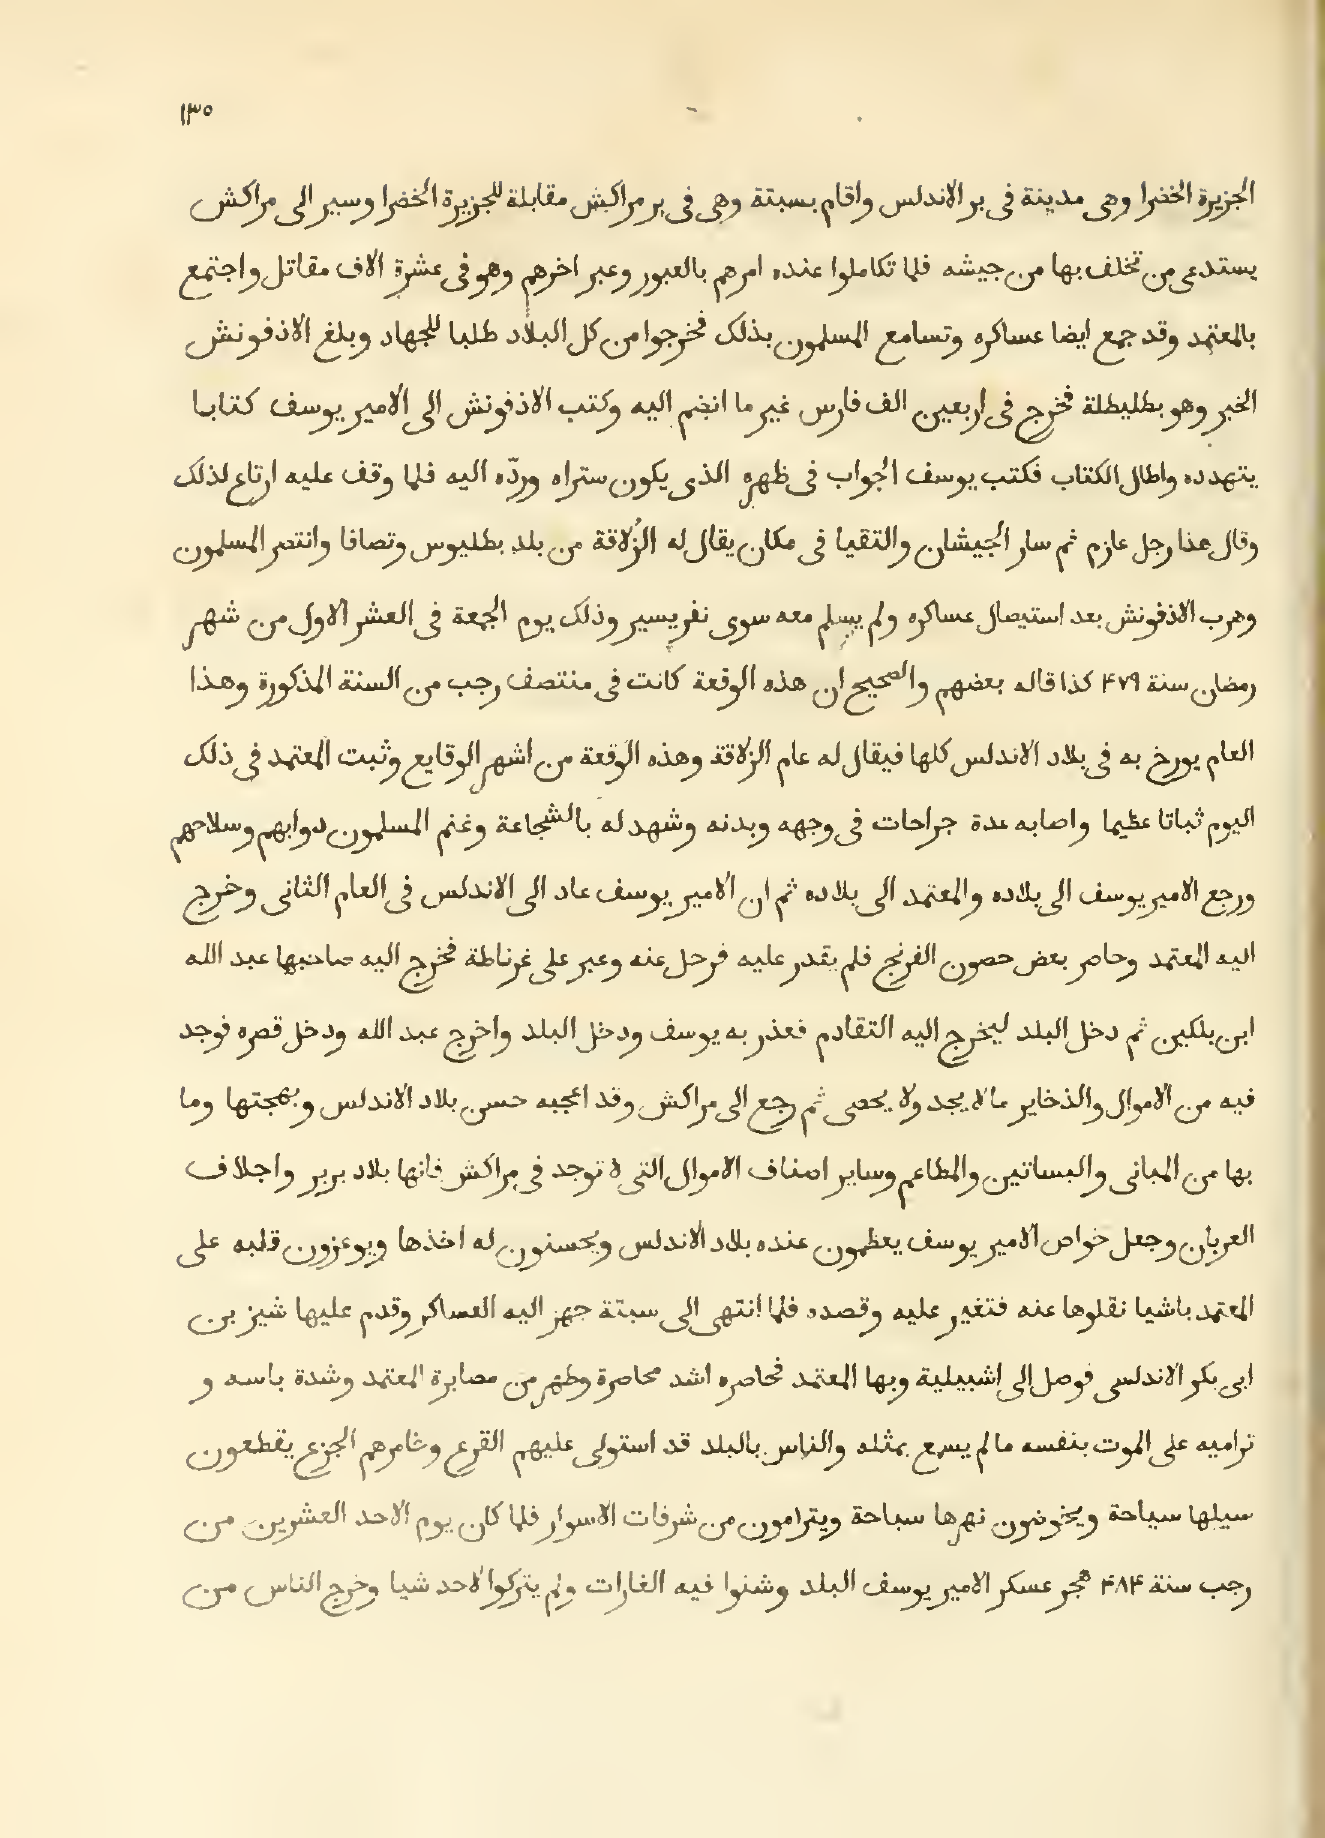 ١٣٥
الجزيرة الخضرا وهى مدينة فى بر الاندلس واقام بسبتة وهى فى بر مراكش مقابلة للجزيرة الخضرا وسير الى مراكش
يستدعى من تخلف بها من جيشه فلما تكاملوا عنده امرهم بالعبور وعبر اخرهم وهو فى عشرة الاف مقاتل واجتمع
بالمعتمد وقد جمع ايضا عساكره وتسامع المسلمون بذلك فخرجوا من كل البلاد طلبا للجهاد وبلغ الاذفونش
الخبر وهو بطليطلة فخرج فى اربعين الف فارس غير ما انضم اليه وكتب الاذفونش الى الامير يوسف كتابا
يتهدده واطال الكتاب فكتب يوسف الجواب فى ظهره الذى يكون ستراه وردّه اليه فلما وقف عليه ارتاع لذلك
وقال هذا رجل عازم ثم سار الجيشان والتقيا فى مكان يقال له الزُلاقة من بلد بطليوس وتصافا وانتصر المسلمون
وهرب الاذفونش بعد استيصال عساكره ولم يسلم معه سوى نفر يسير وذلك يوم الجمعة فى العشر الاول من شهر
رمضان سنة ۴۷۹ كذا قاله بعضهم والصحيح ان هذه الوقعة كانت فى منتصف رجب من السنة المذكورة وهذا
العام يورخ به فى بلاد الاندلس كلها فيقال له عام الزلاقة وهذه الوقعة من اشهر الوقايع وثبت المعتمد فى ذلك
اليوم ثباتا عظيما واصابه عدة جراحات فى وجهه وبدنه وشهد له بالشجاعة وغنم المسلمون دوابهم وسلاحهم
ورجع الامير يوسف الى بلاده والمعتمد الى بلاده ثم ان الامير يوسف عاد الى الاندلس فى العام الثانى وخرج
اليه المعتمد وحاصر بعض حصون الفرنج فلم يقدر عليه فرحل عنه وعبر على غرناطة فخرج اليه صاحبها عبد الله
ابن بلكين ثم دخل البلد ليخرج اليه التقادم فغدر به يوسف ودخل البلد واخرج عبد الله ودخل قصره فوجد
فيه من الاموال والذخاير ما لا يحد ولا يحصى ثم رجع الى مراكش وقد اعجبه حسن بلاد الاندلس وبهجتها وما
بها من المبانى والبساتين والمطاعم وساير اصناف الاموال التى لا توجد فى مراكش فانها بلاد بربر واجلاف
العربان وجعل خواص الامير يوسف يعظمون عنده بلاد الاندلس ويحسنون له اخذها ويوغرون قلبه على
المعتمد باشيا نقلوها عنه فتغير عليه وقصده فلما انتهى الى سبتة جهز اليه العساكر وقدم عليها شيز بن
ابى بكر الاندلسى فوصل الى اشبيلية وبها المعتمد فحاصره اشد محاصرة وظهر من مصابرة المعتمد وشدة باسه و
تراميه على الموت بنفسه ما لم يسمع بمثله والناس بالبلد قد استولى عليهم القرع وخامرهم الجزع يقطعون
سيلها سياحة ويخوضون نهرها سباحة ويترامون من شرفات الاسوار فلما كان يوم الاحد العشرين من
رجب سنة ۴۸۴ هجر عسكر الامير يوسف البلد وشنوا فيه الغارات ولم يتركوا لاحد شيا وخرج الناس من